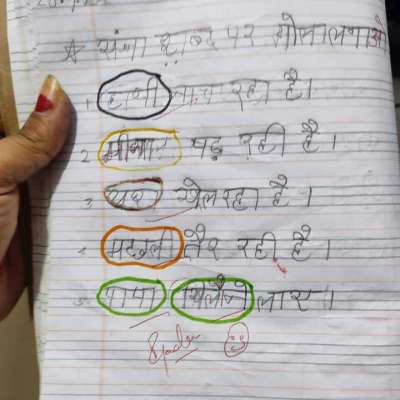 ★ संज्ञा शब्द पर गोला लगाओ
1. हाथी नाच रहा है।
2. पढ़ रही है।
3. खेल रहा है।
4. मछली तैर रही है।
5. पापा खिलौने लाए।